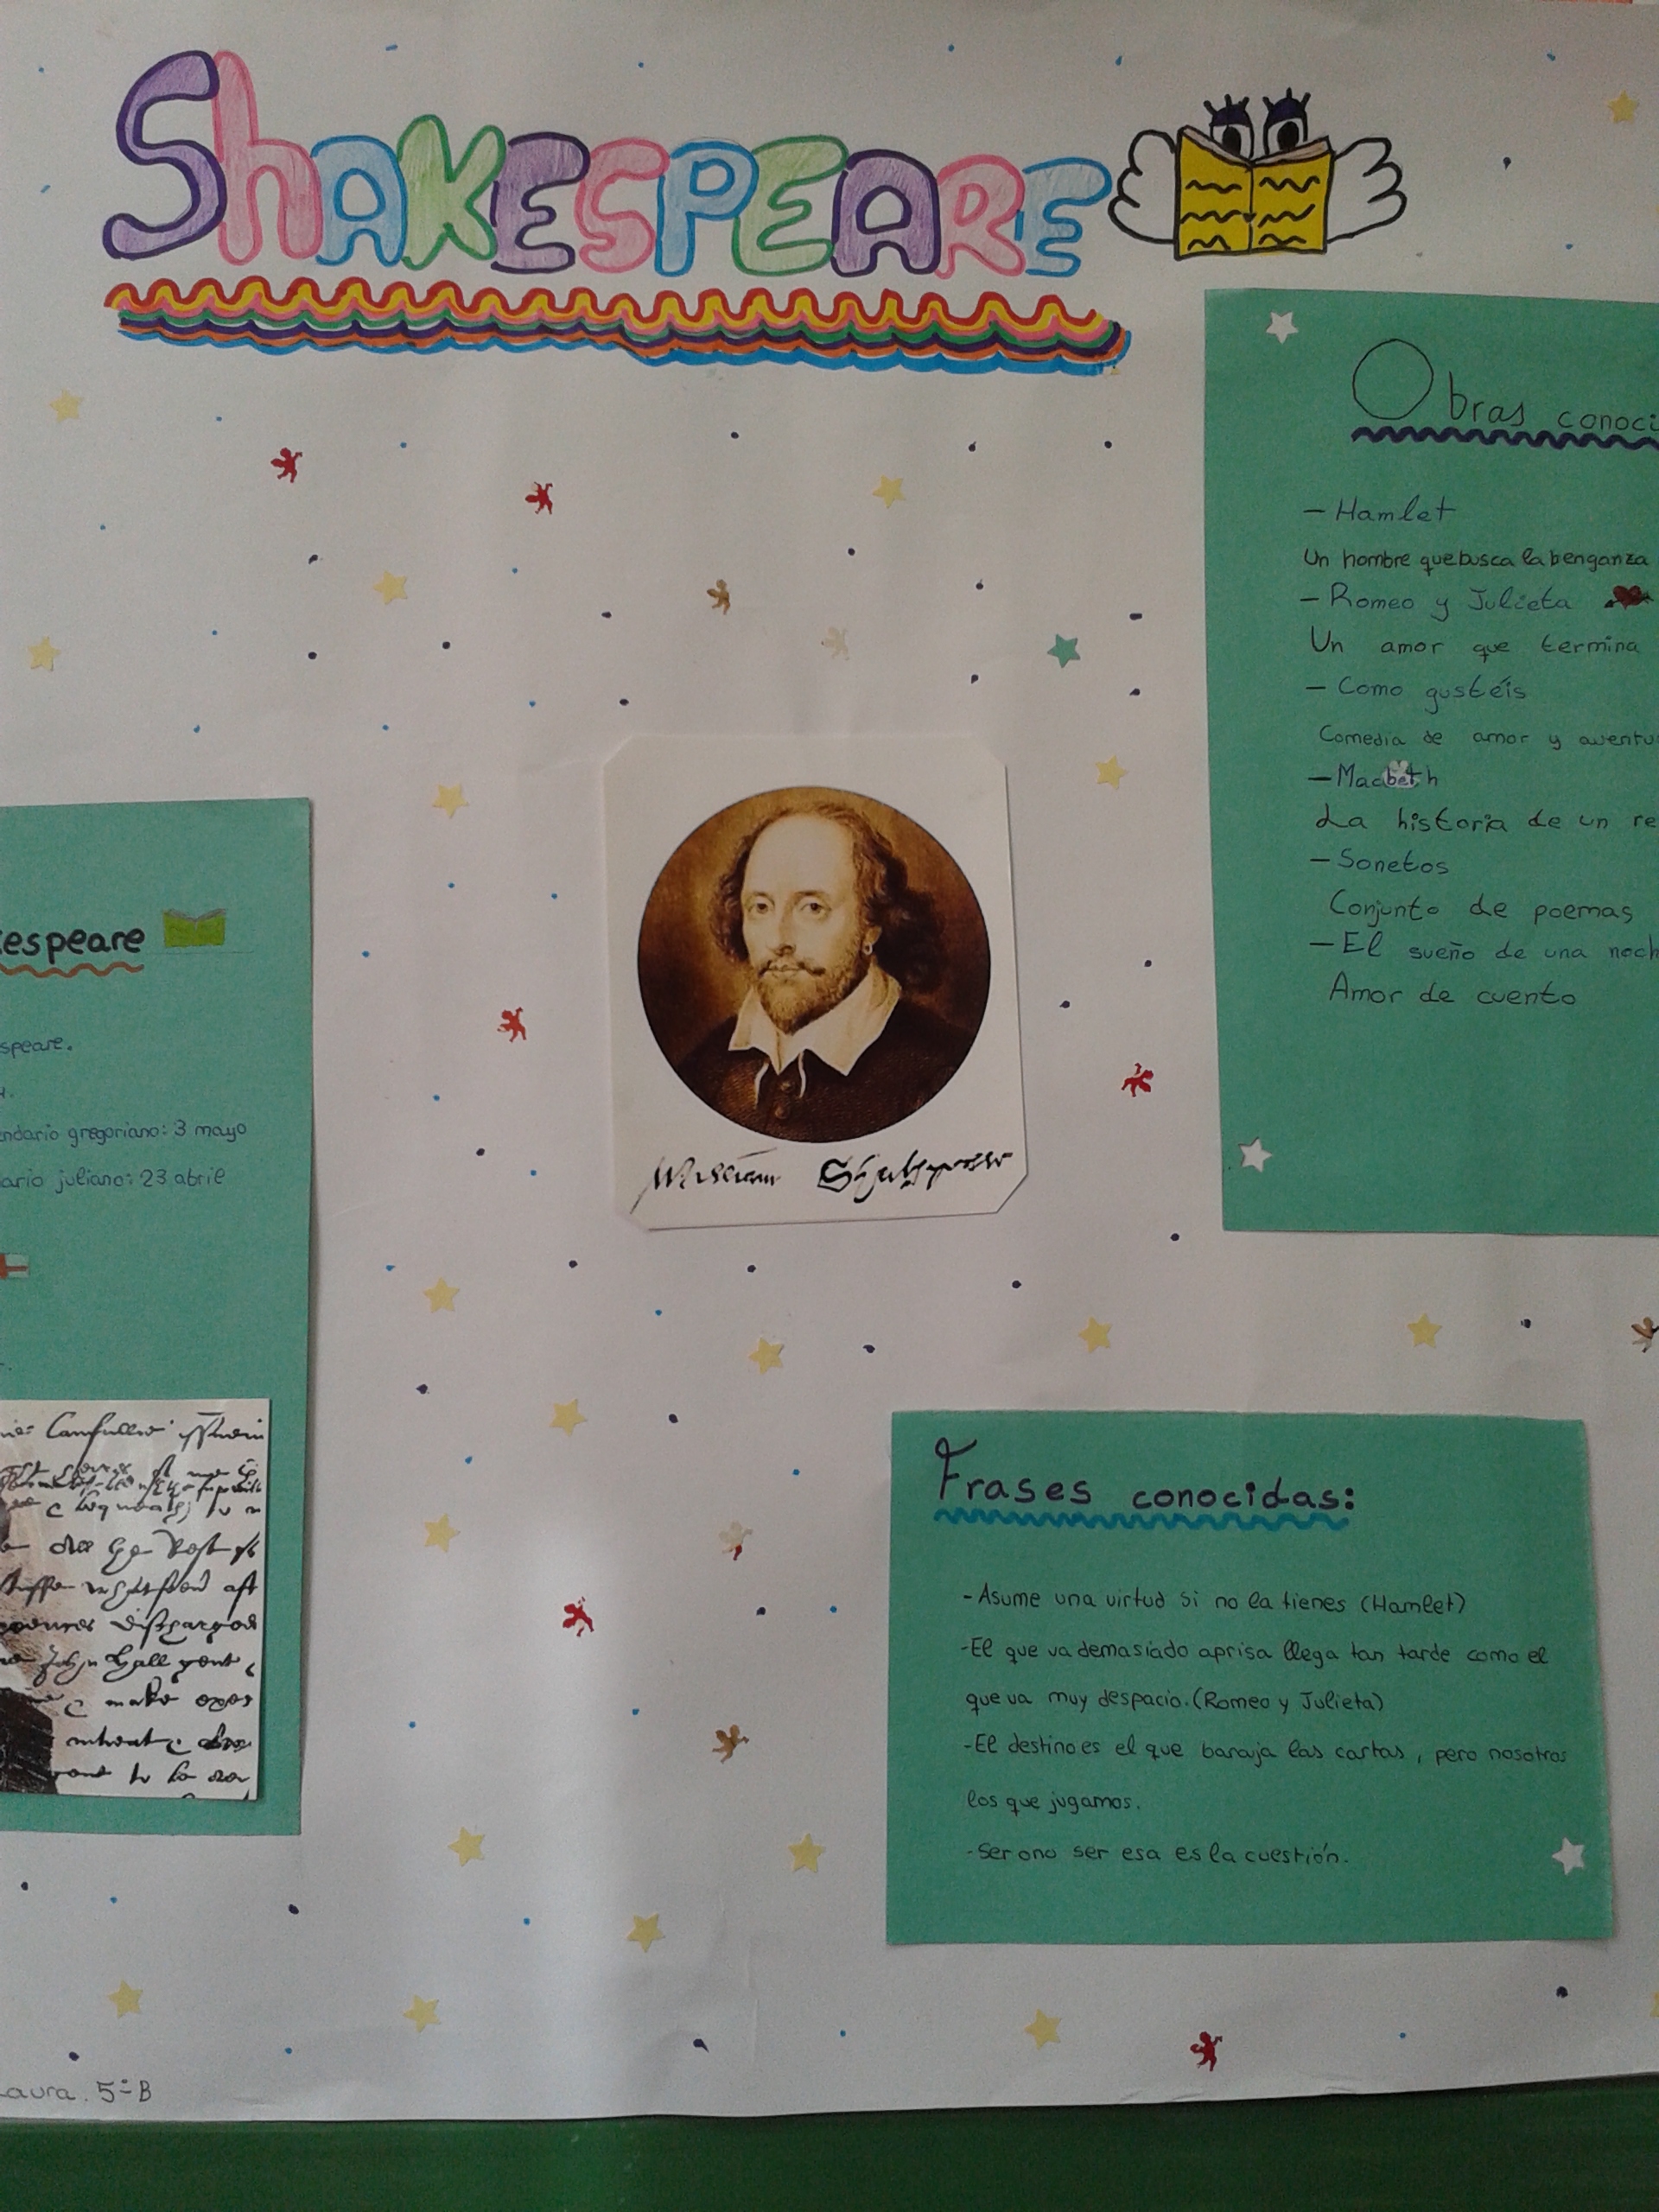 SHAKESPEARE
Obras conoci
- Hamlet
Un hombre que busca la benganza
- Romeo y Julieta
Un amor que termina
- Como gustéis
Comedia de amor y aventu
- Macbeth
La historia de un re
- Sonetos
Conjunto de poemas
- El sueño de una noch
Amor de cuento
espeare
speare.
endario gregoriano: 3 mayo
ario juliano: 23 abril
William
Frases conocidas:
- Asume una virtud si no la tienes (Hamlet)
-El que va demasiado aprisa llega tan tarde como el
que va muy despacio. (Romeo y Julieta)
-El destino es el que baraja las cartas, pero nosotros
los que jugamos.
-Ser o no ser esa es la cuestión.
Laura. 5ºB